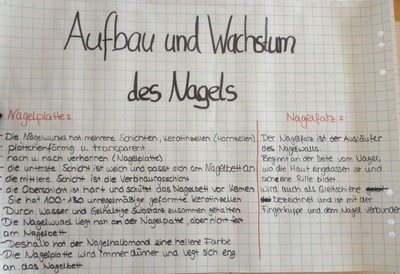 Aufbau und Wachstum
des Nagels
Nagelplatte:
- Die Nagelwurzel hat mehrere Schichten, Keratinzellen (Hornzellen)
- plättchenförmig u. transparent
- nach u nach verhornen (Nagelplatte)
- die unterste Schicht ist weich und passt sich am Nagelbett an
- die mittlere Schicht ist die Verbindungsschicht
- die Oberschicht ist hart und schützt das Nagelbett vor Keimen
Sie hat 100-130 unregelmäßige geformte Keratinzellen
Durch Wasser und Gelhaltige Substanz zusammen gehalten
Die Nagelwurzel liegt nah an der Nagelplatte, aber nicht fest
am Nagelbett
- Deshalb hat der Nagelhalbmond eine hellere Farbe
- Die Nagelplatte wird immer dünner und legt sich eng
an das Nagelbett
Nagelfalz:
Der Nagelfalz ist der Ausläufer
des Nagelwalls.
Beginnt an der Seite vom Nagel,
wo die Haut eingelassen ist und
sichere Rille bildet.
wird auch als Gleitschiene
bezeichnet und ist mit der
Fingerkuppe und dem Nagel verbunden